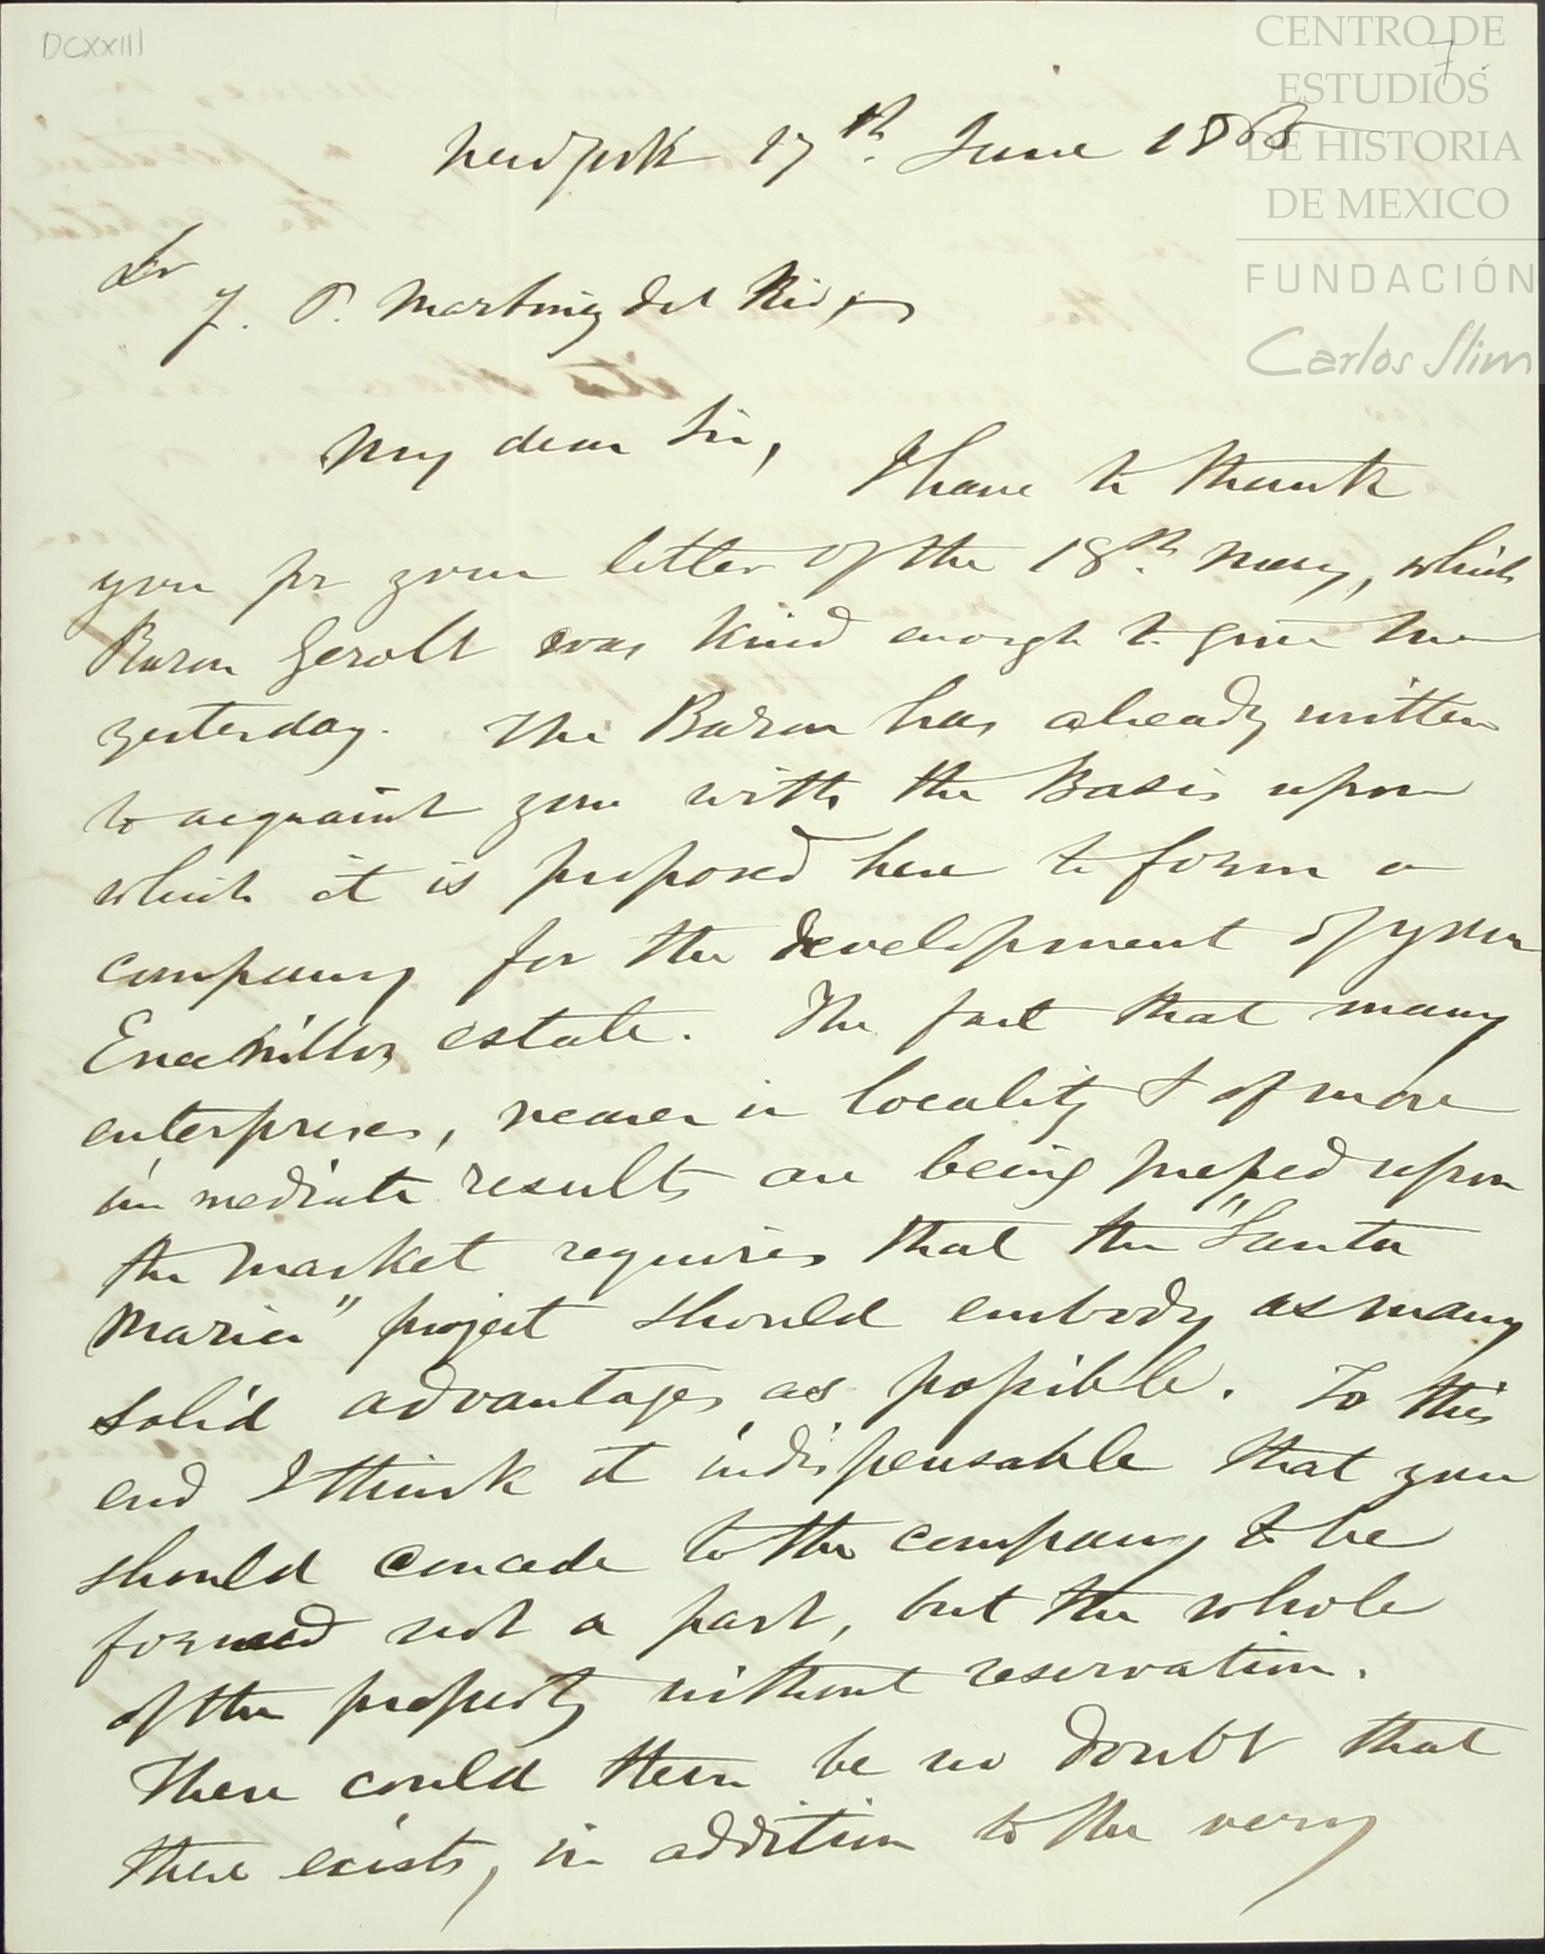 DCXXIII
7
CENTRO DE
ESTUDIOS
DE HISTORIA
DE MEXICO
FUNDACIÓN
Carlos Slim
New York 17th. June 1865
Sr
J. P. Martinez del Rio
My dear Sir,
I have to thank
you for your letter of the 18th. May, which
Baron Gerolt was kind enough to give me
yesterday. The Baron has already written
to acquaint you with the Basis upon
which it is proposed here to form a
company for the development of your
Encinillas estate. The fact that many
enterprises, nearer in locality & of more
immediate results are being pressed upon
the market requires that the "Santa
Maria" project should embody as many
solid advantages as possible. To this
end I think it indispensable that you
should concede to the company to be
formed not a part, but the whole
of the property without reservation.
There could then be no doubt that
there exists, in addition to the very